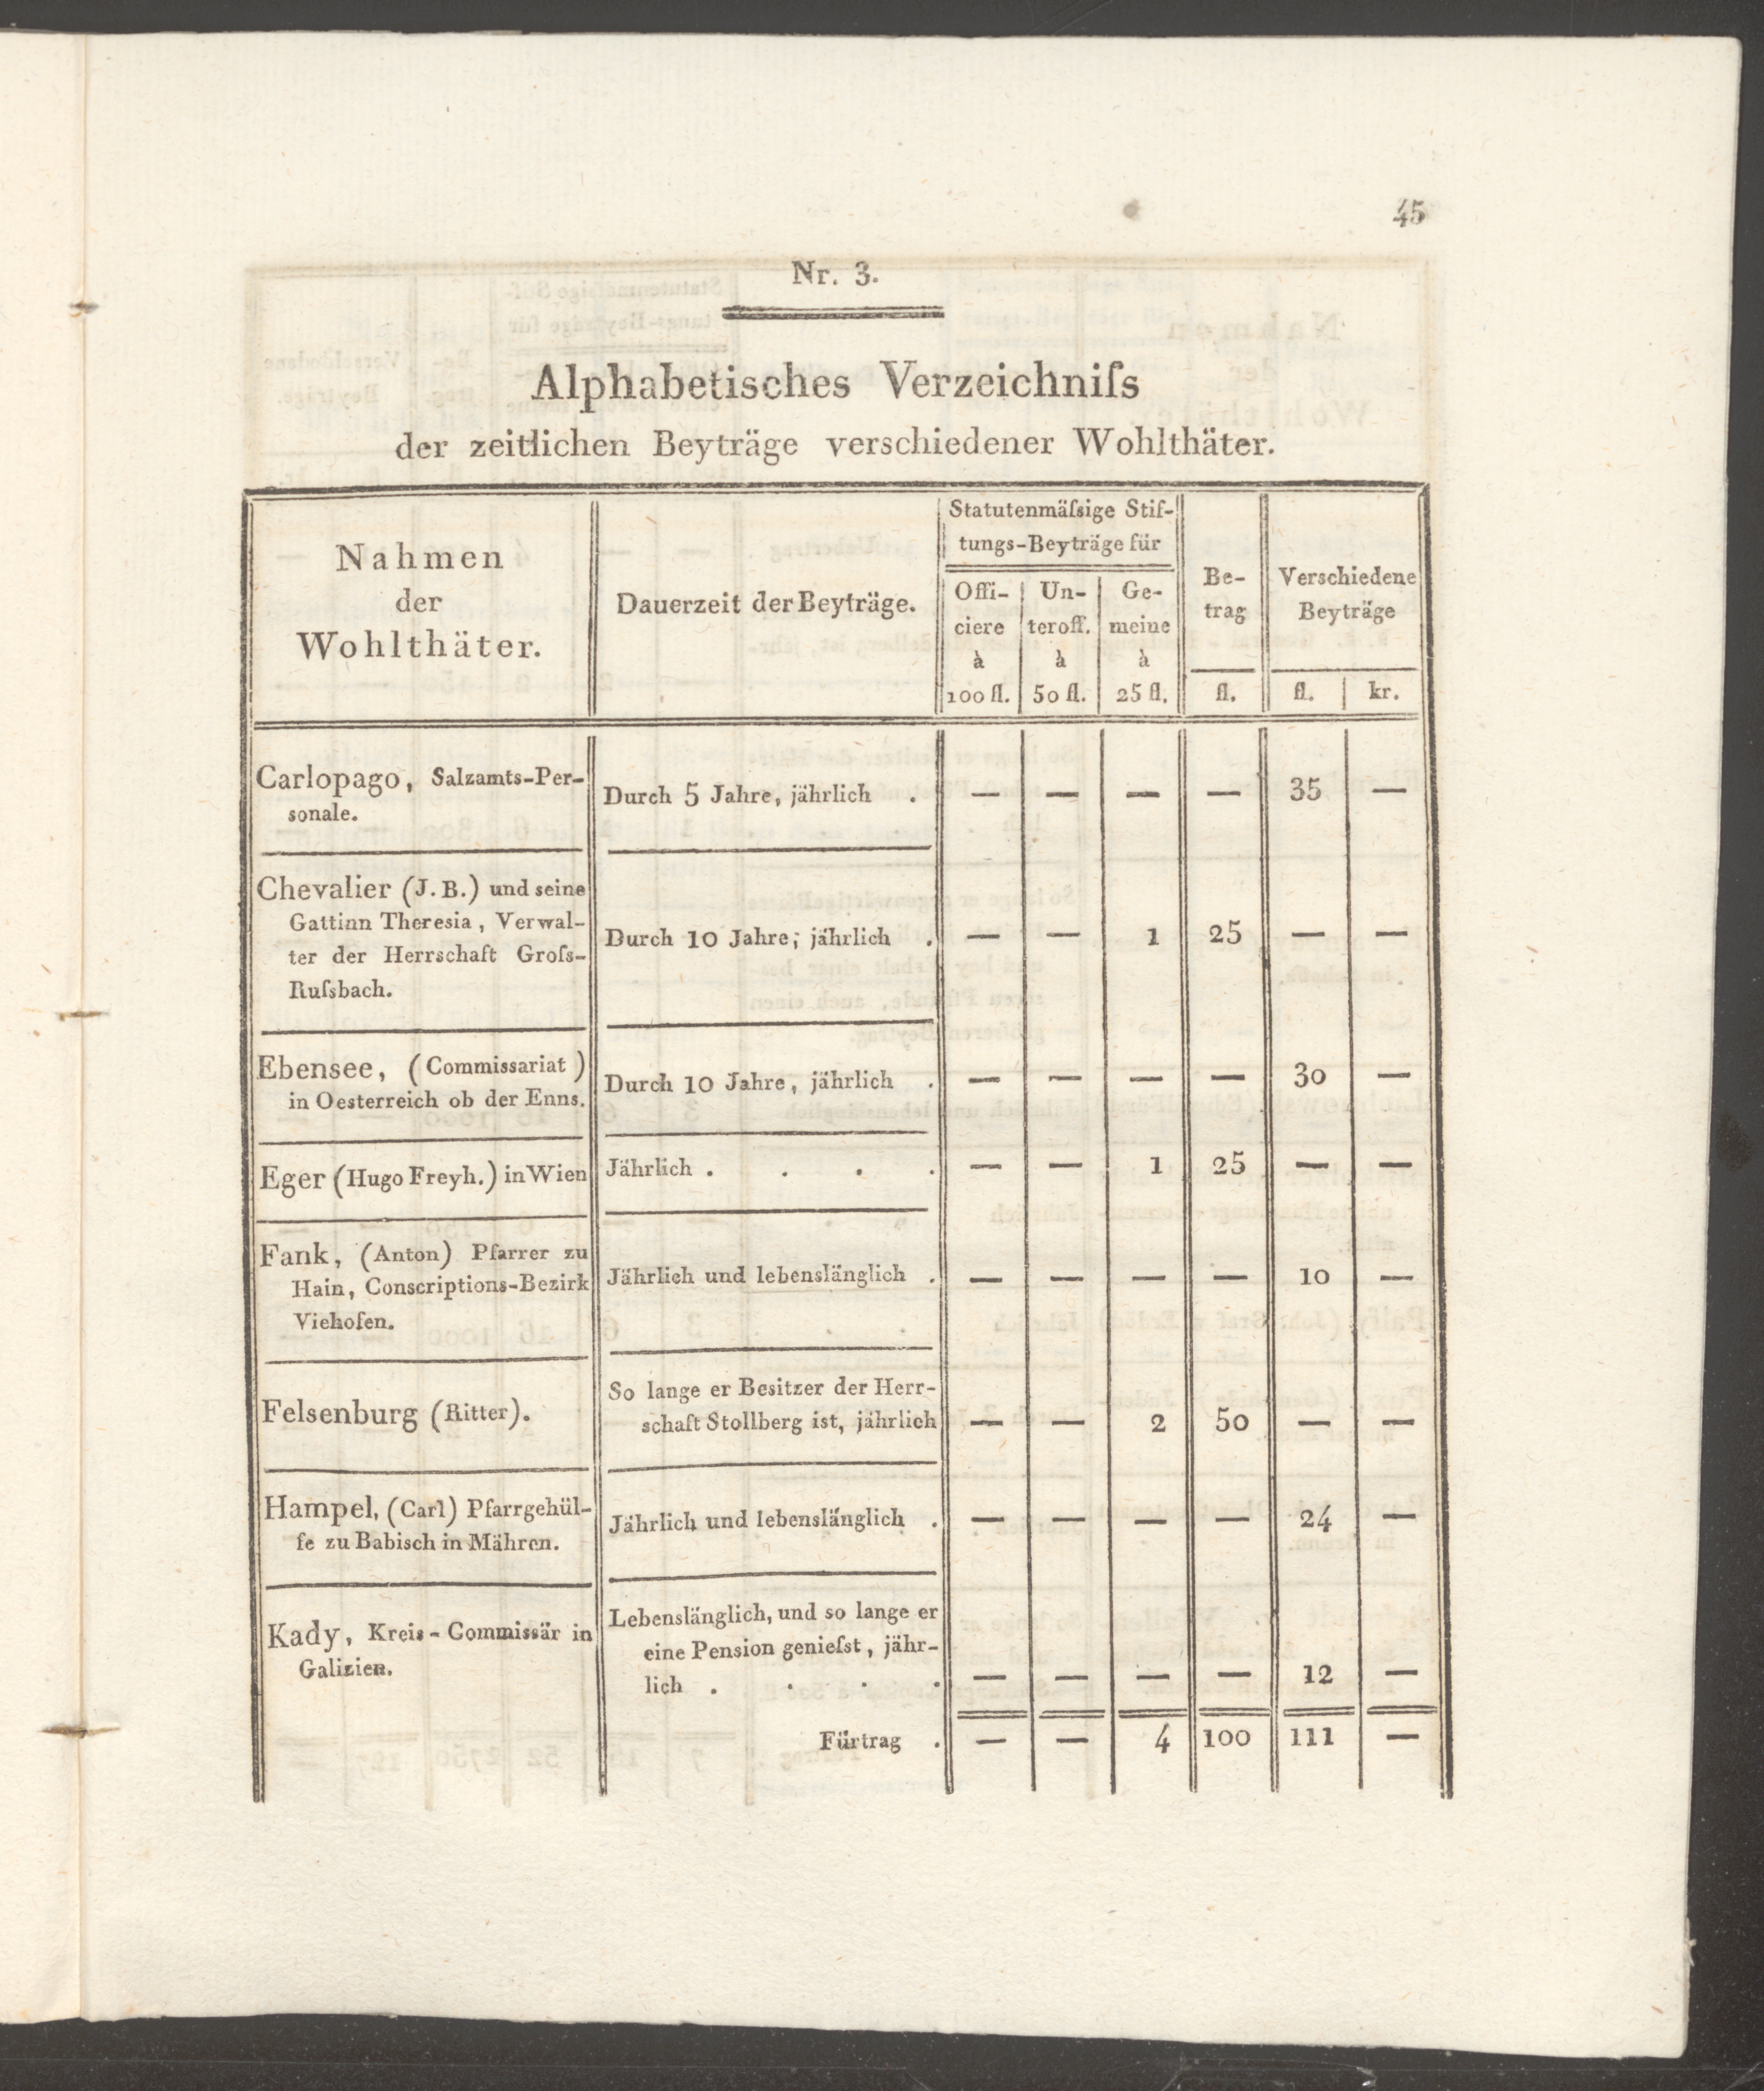 45
Nr. 3.
Alphabetisches Verzeichniſs
der zeitlichen Beyträge verschiedener Wohlthäter.
Nahmen
der
Wohlthäter.
Dauerzeit der Beyträge.
Statutenmäſsige Stif-
tungs-Beyträge für
Offi-
ciere
à
100 fl.
Un-
teroff.
à
50 fl.
Ge-
meine
à
25 fl.
Be-
trag
fl.
Verschiedene
Beyträge
fl. kr.
Carlopago, Salzamts-Per-
sonale.
Durch 5 Jahre, jährlich . — — — — 35 —
Chevalier (J. B.) und seine
Gattinn Theresia, Verwal-
ter der Herrschaft Groſs-
Ruſsbach.
Durch 10 Jahre; jährlich . — — 1 25 — —
Ebensee, (Commissariat)
in Oesterreich ob der Enns.
Durch 10 Jahre, jährlich . — — — — 30 —
Eger (Hugo Freyh.) in Wien
Jährlich . . . . — — 1 25 — —
Fank, (Anton) Pfarrer zu
Hain, Conscriptions-Bezirk
Viehofen.
Jährlich und lebenslänglich . — — — — 10 —
Felsenburg (Ritter).
So lange er Besitzer der Herr-
schaft Stollberg ist, jährlich — — 2 50 — —
Hampel, (Carl) Pfarrgehül-
fe zu Babisch in Mähren.
Jährlich und lebenslänglich . — — — — 24 —
Kady, Kreis-Commissär in
Galizien.
Lebenslänglich, und so lange er
eine Pension genieſst, jähr-
lich . . . . — — — — 12 —
Fürtrag . — — 4 100 111 —